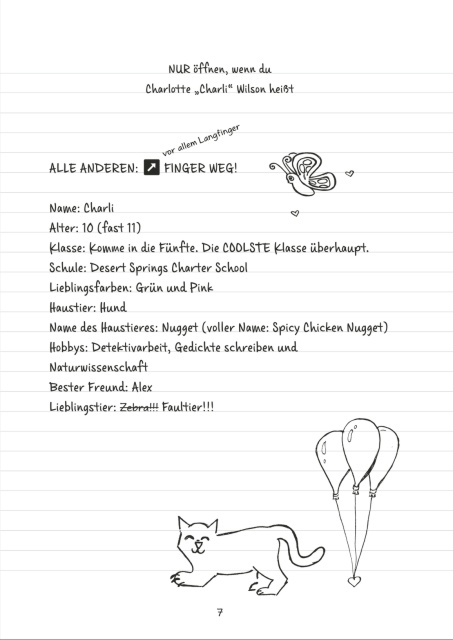 NUR öffnen, wenn du
Charlotte „Charli“ Wilson heißt
vor allem Langfinger
ALLE ANDEREN: ↗ FINGER WEG!
Name: Charli
Alter: 10 (fast 11)
Klasse: Komme in die Fünfte. Die COOLSTE Klasse überhaupt.
Schule: Desert Springs Charter School
Lieblingsfarben: Grün und Pink
Haustier: Hund
Name des Haustieres: Nugget (voller Name: Spicy Chicken Nugget)
Hobbys: Detektivarbeit, Gedichte schreiben und
Naturwissenschaft
Bester Freund: Alex
Lieblingstier: Zebra!!! Faultier!!!
7